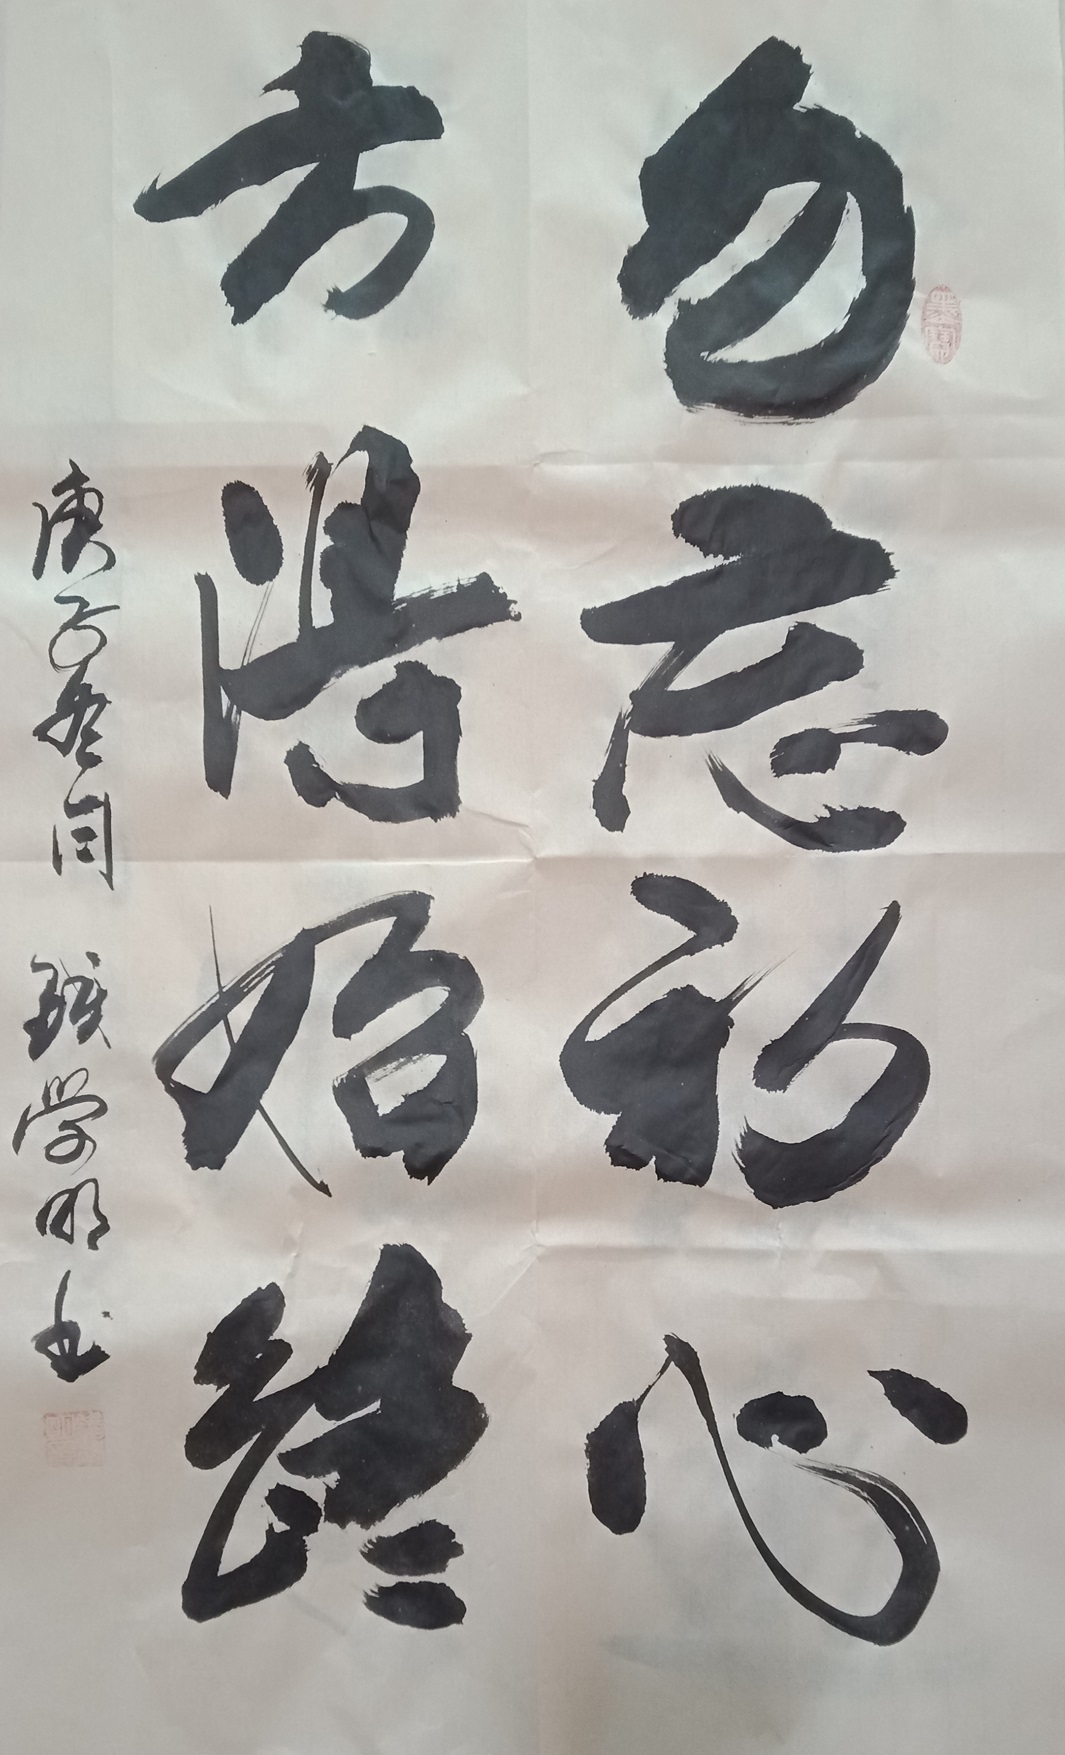 勿忘初心
方得始终
庚子冬月 钱学明书